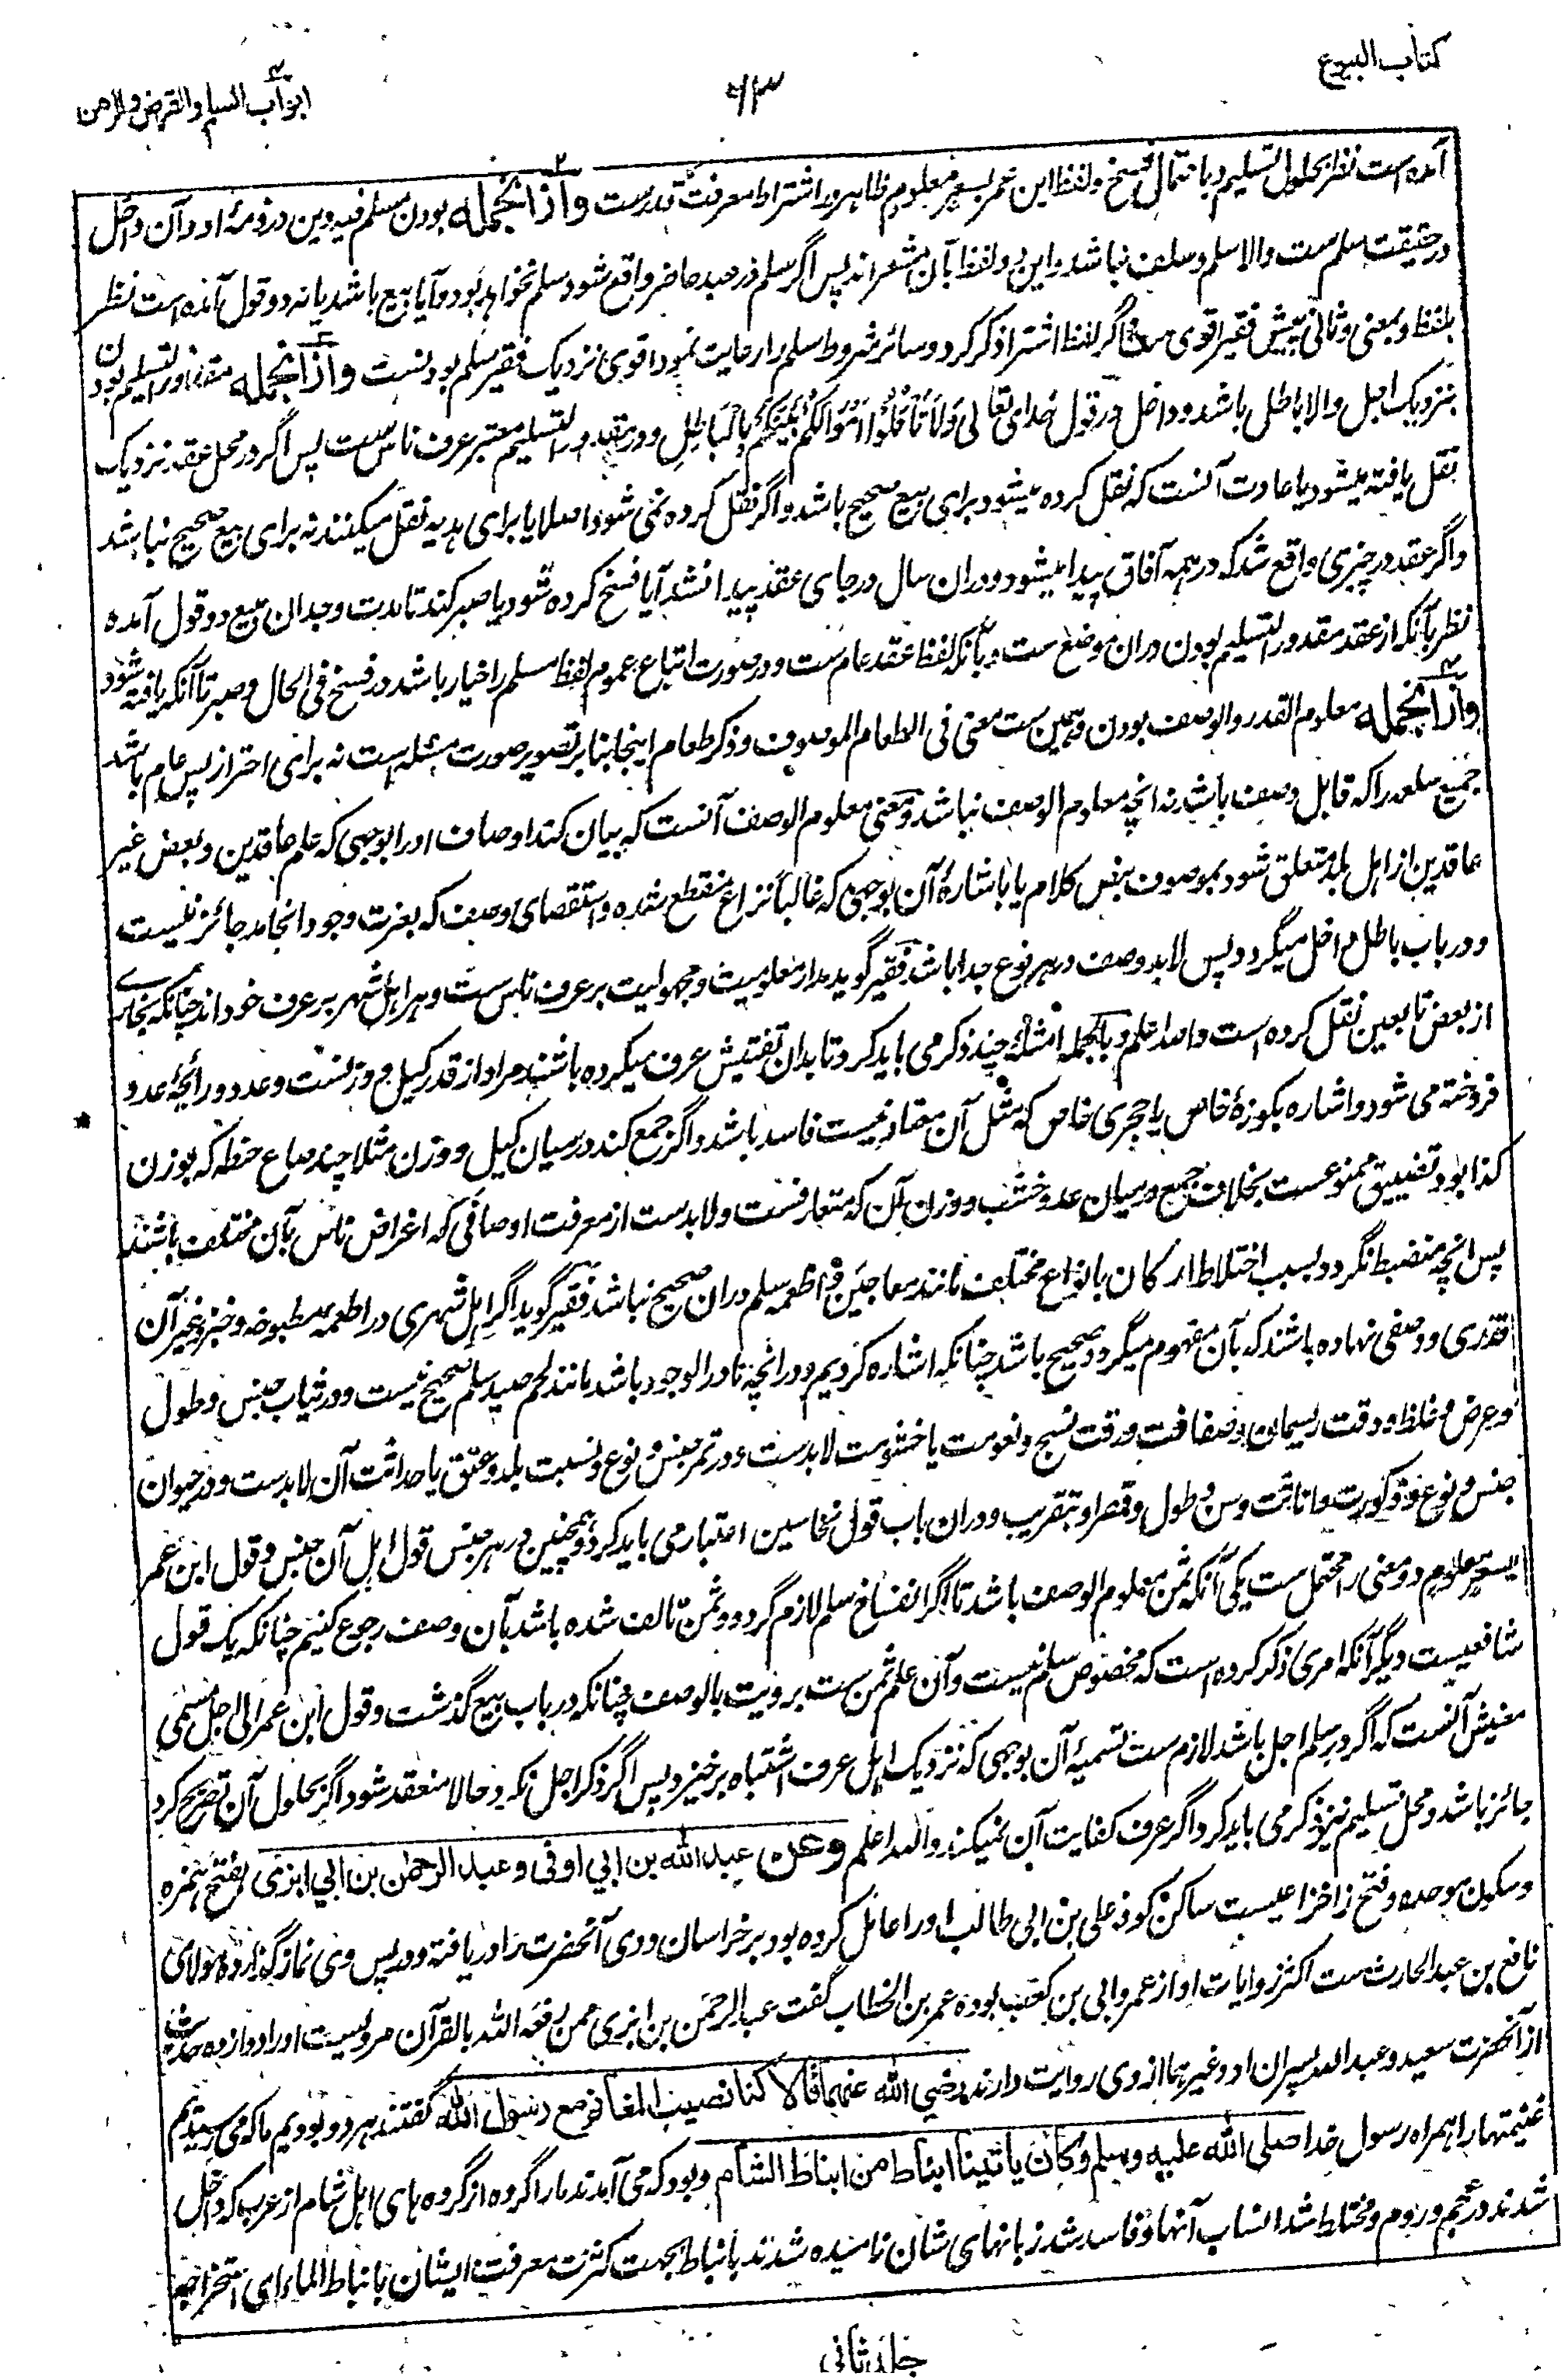 کتاب البیوع
۶۳
ابواب السلم والقرض والرهن
آمده است نظر بحلول تسلیم و باحتمال فسخ و لفظ ابن عمر بسعر معلوم ظاهر در اشتراط معرفت قدرست وازانجمله بودن مسلم فیه دین در ذمهٔ او و آن داخل
در حقیقت سلم ست والا سلم و سلف نباشد و این دو لفظ بآن مشعر اند پس اگر سلم در عبد حاضر واقع شود سلم نخواهد بود و آیا بیع باشد یا نه دو قول آمده است نظر
بلفظ و بمعنی و ثانی پیش فقیر اقوی ست و اگر لفظ اشترا ذکر کرد و سائر شروط سلم را رعایت نمود اقوی نزدیک فقیر سلم بودنست وازانجمله مقدور التسلیم بودن
بنزدیک اجل والا باطل باشد و داخل در قول خدای تعالی وَلَا تَأْكُلُوا أَمْوَالَكُمْ بَيْنَكُمْ بِالْبَاطِلِ و در مقدور التسلیم معتبر عرف ناس ست پس اگر در محل عقد نزدیک
نقل یافته میشود یا عادت آنست که نقل کرده میشود برای بیع صحیح باشد و اگر نقل کرده نمی شود اصلا یا برای هدیه نقل میکنند نه برای بیع صحیح نباشد
و اگر عقد در چیزی واقع شد که در همه آفاق پیدا میشود و دران سال در جای عقد پیدا نشد آیا فسخ کرده شود یا صبر کند تا مدت وجدان مبیع دو قول آمده
نظر بآنکه از عقد مقدور التسلیم بودن دران موضع ست و بآنکه لفظ عقد عام ست و در صورت اتباع عموم لفظ مسلم را خیار باشد در فسخ فی الحال و صبر تا آنکه یافته شود
وازانجمله معلوم القدر والوصف بودن و همین ست معنی فی الطعام الموصوف و ذکر طعام اینجا بنا بر تصویر صورت مسئله است نه برای احتراز پس عام باشد
جمیع سلعه را که قابل وصف باشد نه انچه معلوم الوصف نباشد و معنی معلوم الوصف آنست که بیان کند اوصاف او را بوجهی که علم عاقدین و بعض غیر
عاقدین از اهل بلد متعلق شود بموصوف بنفس کلام یا باشارهٔ آن بوجهی که غالباً نزاع منقطع شده و استقصای وصف که بعزت وجود انجامد جائز نیست
و در باب باطل داخل میگردد پس لابد وصف در هر نوع جدا باشد فقیر گوید مدار معلومیت و مجهولیت بر عرف ناس ست و هر اهل شهر بر عرف خود اند چنانکه بخاری
از بعض تابعین نقل کرده است والله اعلم و بالجمله امثلهٔ چند ذکر می باید کرد تا بدان تفتیش عرف میکرده باشند مراد از قدر کیل و وزنست و عدد در انچه بعدد
فروخته می شود و اشاره بکوزهٔ خاص یا حجری خاص که مثل آن معتاد نیست فاسد باشد و اگر جمع کند درمیان کیل و وزن مثلا چند صاع حنطه که بوزن
کذا بود تضییق ممنوعست بخلاف جمع درمیان عدد خشب و وزن آن که متعارفست ولابدست از معرفت اوصافی که اغراض ناس بآن مختلف باشند
پس انچه منضبط نگردد بسبب اختلاط ارکان بانواع مختلف مانند معاجین و اطعمه سلم دران صحیح نباشد فقیر گوید اگر اهل شهری در اطعمه مطبوخه و خبز و غیر آن
قدری و وصفی نهاده باشند که بآن مفهوم میگردد صحیح باشد چنانکه اشاره کردیم و در انچه نادر الوجود باشد مانند لحم صید سلم صحیح نیست و در ثیاب جنس و طول
و عرض و غلظ و دقت ریسمان و صفاقت و رقت نسج و نعومت یا خشونت لابدست و در تمر جنس و نوع و نسبت بلد و عتق یا حداثت آن لابدست و در حیوان
جنس و نوع و ذکورت و اناثت و سن و طول و قصر او بتقریب و دران باب قول نخاسین اعتبار می باید کرد و همچنین در هر جنس قول اهل آن جنس و قول ابن عمر
بسعر معلوم دو معنی را محتمل ست یکی آنکه ثمن معلوم الوصف باشد تا اگر انفساخ سلم لازم گردد و ثمن تالف شده باشد بآن وصف رجوع کنیم چنانکه یک قول
شافعیست دیگر آنکه امری ذکر کرده است که مخصوص سلم نیست و آن علم ثمن ست برویت یا بوصف چنانکه در باب بیع گذشت و قول ابن عمر الی اجل مسمی
معنیش آنست که اگر در سلم اجل باشد لازم ست تسمیهٔ آن بوجهی که نزدیک اهل عرف اشتباه برخیزد پس اگر ذکر اجل نکرد حالا منعقد شود و اگر بحلول آن تصریح کرد
جائز باشد و محل تسلیم نیز ذکر می باید کرد اگر عرف کفایت آن نمیکند والله اعلم وعن عبدالله بن ابي اوفى وعبد الرحمن بن ابي ابزى بفتح همزه
و سکون موحده و فتح زا خزاعیست ساکن کوفه علی بن ابی طالب او را عامل کرده بود بر خراسان و وی آنحضرت را دریافته و در پس وی نماز گذارده مولای
نافع بن عبد الحارث ست اکثر روایات او از عمر و ابی بن کعب بوده عمر بن الخطاب گفت عبد الرحمن بن ابزی ممن رفعه الله بالقرآن مرویست او را دوازده حدیث
از آنحضرت سعید و عبد الله پسران او و غیر هما از وی روایت دارند رضي الله عنهما قالا كنا نصيب المغانم مع رسول الله گفتند هر دو بودیم ما که می رسیدیم
غنیمتها را همراه رسول خدا صلى الله عليه وسلم وكان ياتينا انباط من انباط الشام و بود که می آمدند ما را گروه از گروه های اهل شام از عرب که داخل
شدند در عجم و روم و مختلط شد انساب آنها و فاسد شد زبانهای شان نامیده شدند بانباط بجهت کثرت معرفت ایشان بانباط الماء ای استخراجه
جلد ثانی